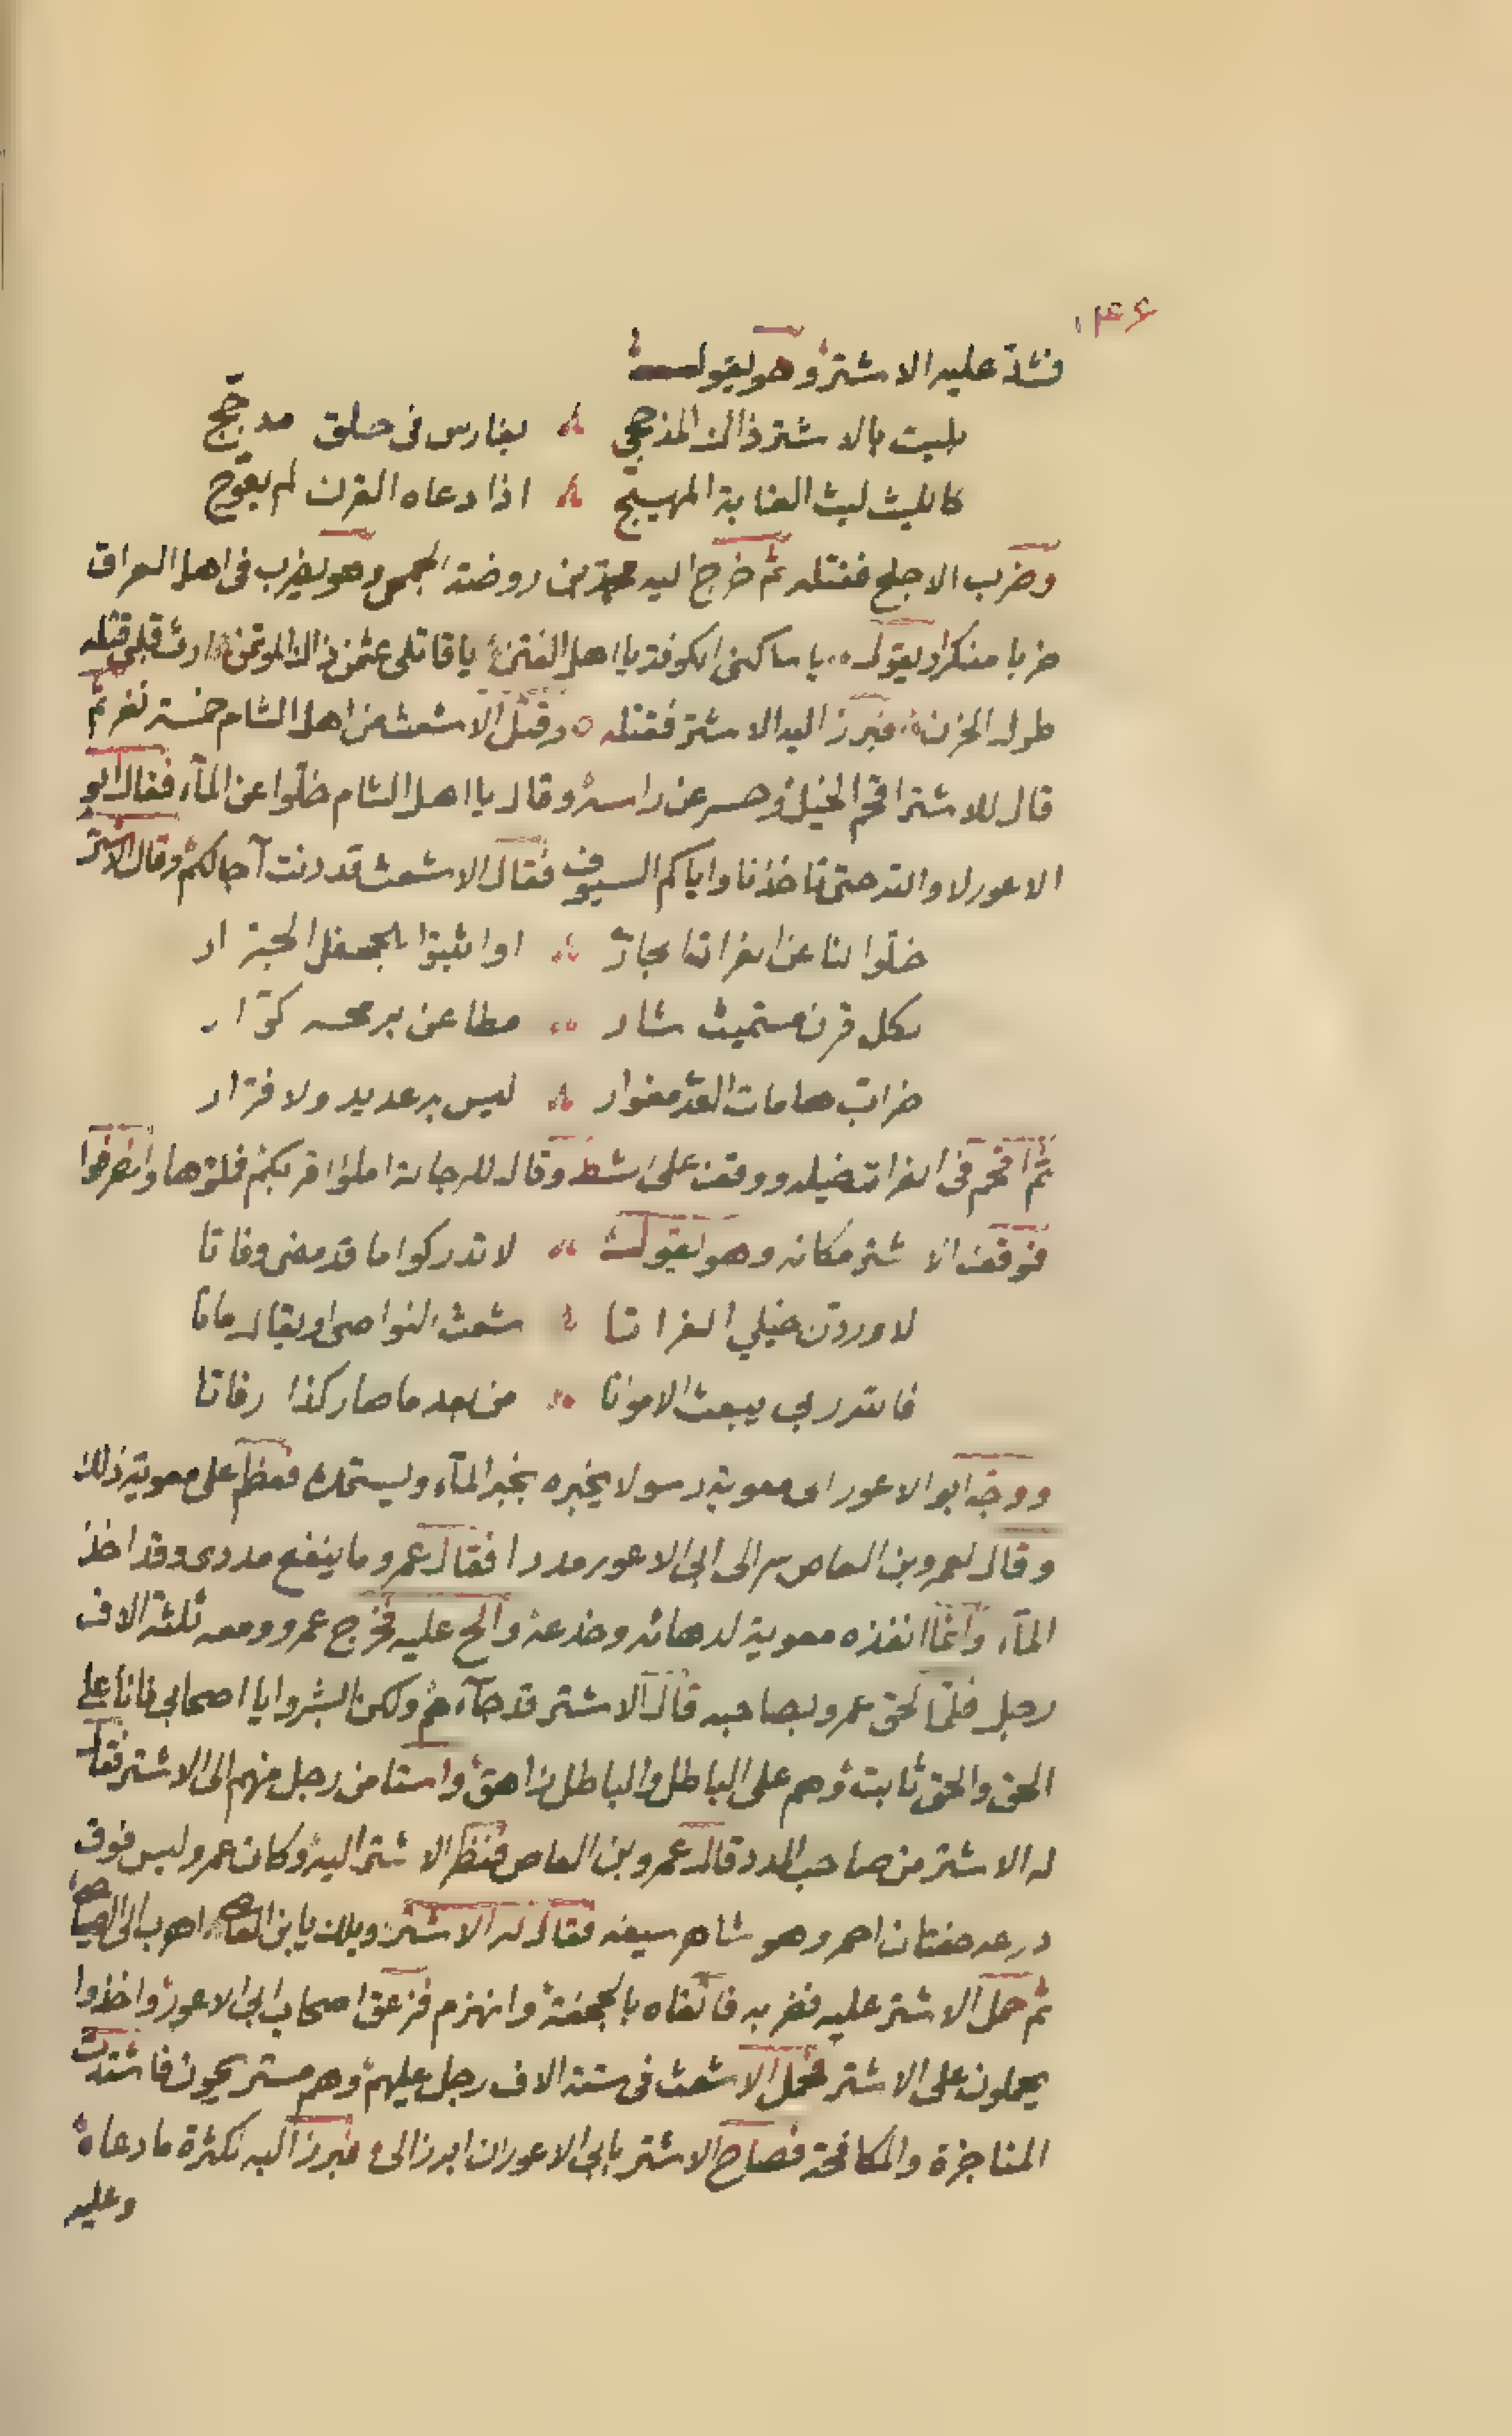 ١٣٤
فشدّ عليه الاشتر وهو يقول
بليت بالاشتر ذاك المذحجي بفارس فى حلق مدجّج
كالليث ليث الغابة المهيّج اذا دعاه القرن لم يعوّج
وضرب الاجلح فقتله ثم خرج اليه محمد بن روضة الجمحى وهو يضرب فى اهل العراق
ضربا منكرا ويقول يا ساكنى الكوفة يا اهل الفتن يا قاتلى عثمن ذاك المؤتمن اورث قلبى قتله
طول الحزن فبرز اليه الاشتر فقتله وقتل الاشعث من اهل الشام خمسة نفر ثم
قال للاشتر اقحم الخيل وحسر عن راسه وقال يا اهل الشام خلّوا عن المآء فقال ابو
الاعور لا والله حتى تاخذنا واياكم السيوف فقال الاشعث قد دنت آجالكم وقال الاشتر
خلّوا لنا عن الفرات الجارى او اثبتوا للجحفل الجرّار
بكل قرن مستميت شار مطاعن برمحه كرّار
ضراب هامات العدّ مغوار ليس برعديد ولا فرّار
ثم اقحم فى الفرات خيله ووقف على الشط وقال للرجالة املؤا قربكم فملؤها وانصرفوا
فوقف الاشتر مكانه وهو يقول لا تدركوا ما قد مضى وفاتا
لاوردن خيلي الفراتا شعث النواصى او يقال ماتا
فالله ربي يبعث الامواتا من بعد ما صار كذا رفاتا
ووجّه ابو الاعور الى معوية رسولا يخبره بخبر المآء ويستمدّه فعظم على معوية ذلك
وقال لعمرو بن العاص سر الى ابى الاعور مددا فقال عمرو ما ينفع مددى وقد اخذ
المآء وانما انفذه معوية لدهائه وخدعه والح عليه فخرج عمرو ومعه ثلثة الاف
رجل فلمّا لحق عمرو بصاحبه قال الاشتر قد جآءهم ولكن ابشروا يا اصحابي فانا على
الحق والحق ثابت وهم على الباطل والباطل زاهق واستامن رجل منهم الى الاشتر فقال
له الاشتر من صاحب المدد قال عمرو بن العاص فنظر الاشتر اليه وكان عمرو لبس فوق
درعه خفتان احمر وهو شاهر سيفه فقال له الاشتر ويلك يا بن العاص اهرب الى الصياصى
ثم حمل الاشتر عليه فضربه فاتقاه بالجحفة وانهزم فزعق اصحاب ابى الاعور واخذوا
يحملون على الاشتر فحمل الاشعث فى ستة الاف رجل عليهم وهم مستريحون فاشتدت
المناجزة والمكافحة فصاح الاشتر بابي الاعور ان ابرز الى فبرز اليه لكثرة ما دعاه
وعليه